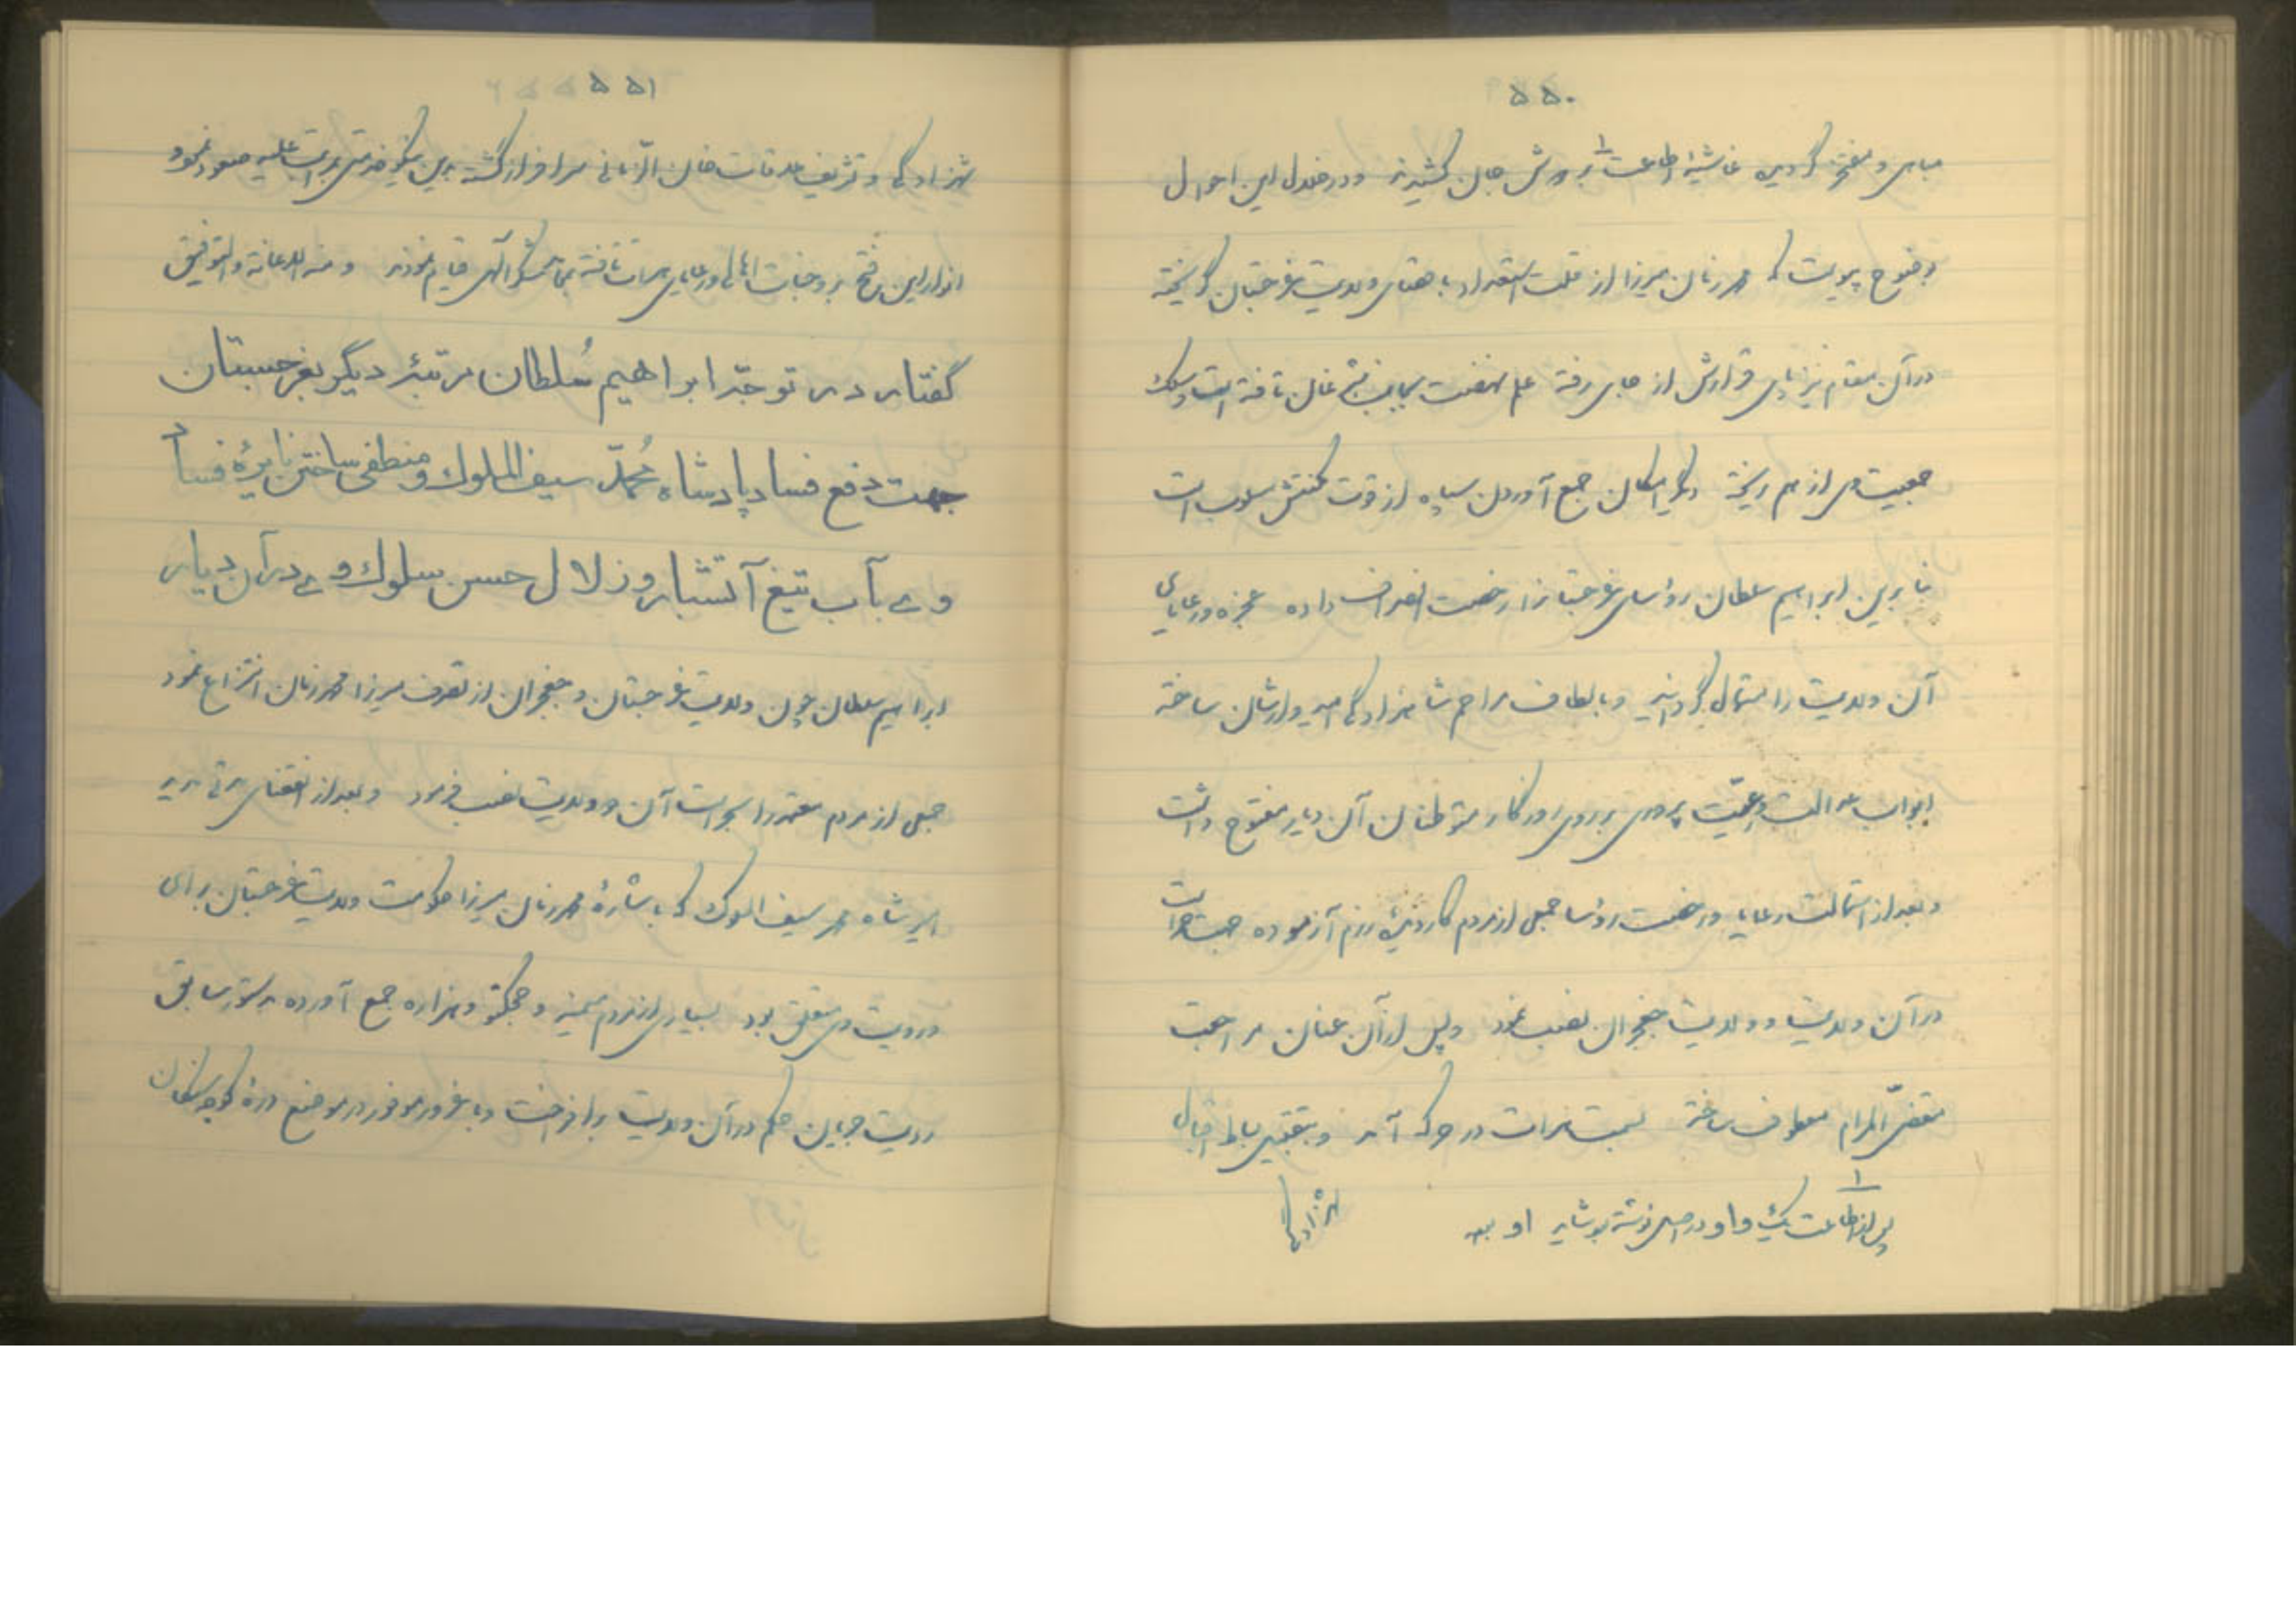 ۵۵۰
مباهی و مفتخر گردیده غاشیهٔ اطاعت ۱ بر دوش جان کشیدند و در خلال این احوال
بوضوح پیوست که محمد زمان میرزا از قلت استعداد باقصای ولایت غرجستان گریخته
در آن مقام نیز پای قرارش از جای رفته علم نهضت بجانب شبرغان تافته است و سلک
جمعیت وی از هم ریخته دیگر امکان جمع آوردن سپاه از قوت مکنتش مسلوب است
بنابرین ابراهیم سلطان رؤسای غرجستانرا رخصت انصراف داده عجزه و رعایای
آن ولایت را مستمال گردانید و بالطاف مراحم شاهزادگی امیدوارشان ساخته
ابواب عدالت و رعیّت پروری بر روی روزگار متوطنان آن دیار مفتوح داشت
و بعد از استمالت رعایا و رخصت رؤسا جمعی از مردم کاردیدهٔ رزم آزموده جهت حراست
در آن ولایت و ولایت جغجران نصب نمود و پس از آن عنان مراجعت
مقضیّ المرام معطوف ساخته بسمت هرات در حرکت آمد و بتقبیل بساط اقبال
۱
پس از اطاعت یک واو در اصل نوشته بود شاید او بود
شهزادگی
۵۵۱
شهزادگی و تشریف ملاقات خان الزّمانی سرافراز گشته بدین نیکو خدمتی بمراتب علیه صعود نمود
انوار این فتح بر وجنات اهالی و رعایای هرات تافته بمراسم شکر الهی قیام نمودند و منه الاعانة والتوفیق
گفتار در توجّه ابراهیم سُلطان مرتبهٔ دیگر بغرجستان
جهت دفع فساد پادشاه مُحمّد سیف الملوک و منطفی ساختن نایرهٔ فساد
وے بآب تیغ آتشبار و زلال حسن سلوک وے در آن دیار
ابراهیم سلطان چون ولایت غرجستان و جغجران از تصرف میرزا محمد زمان انتزاع نمود
جمعی از مردم معتمد را بحراست آن دو ولایت نصب فرمود و بعد از انقضای مدتی مدید
امیر شاه محمد سیف الملوک که باشارهٔ محمد زمان میرزا حکومت ولایت غرجستان برای
و رویت وی متعلق بود بسیاری از مردم میمنه و چچکتو و هزاره جمع آورده بدستور سابق
رایت جهانبانی حکم در آن ولایت برافراخت و با غرور موفور در موضع درهٔ کوجه